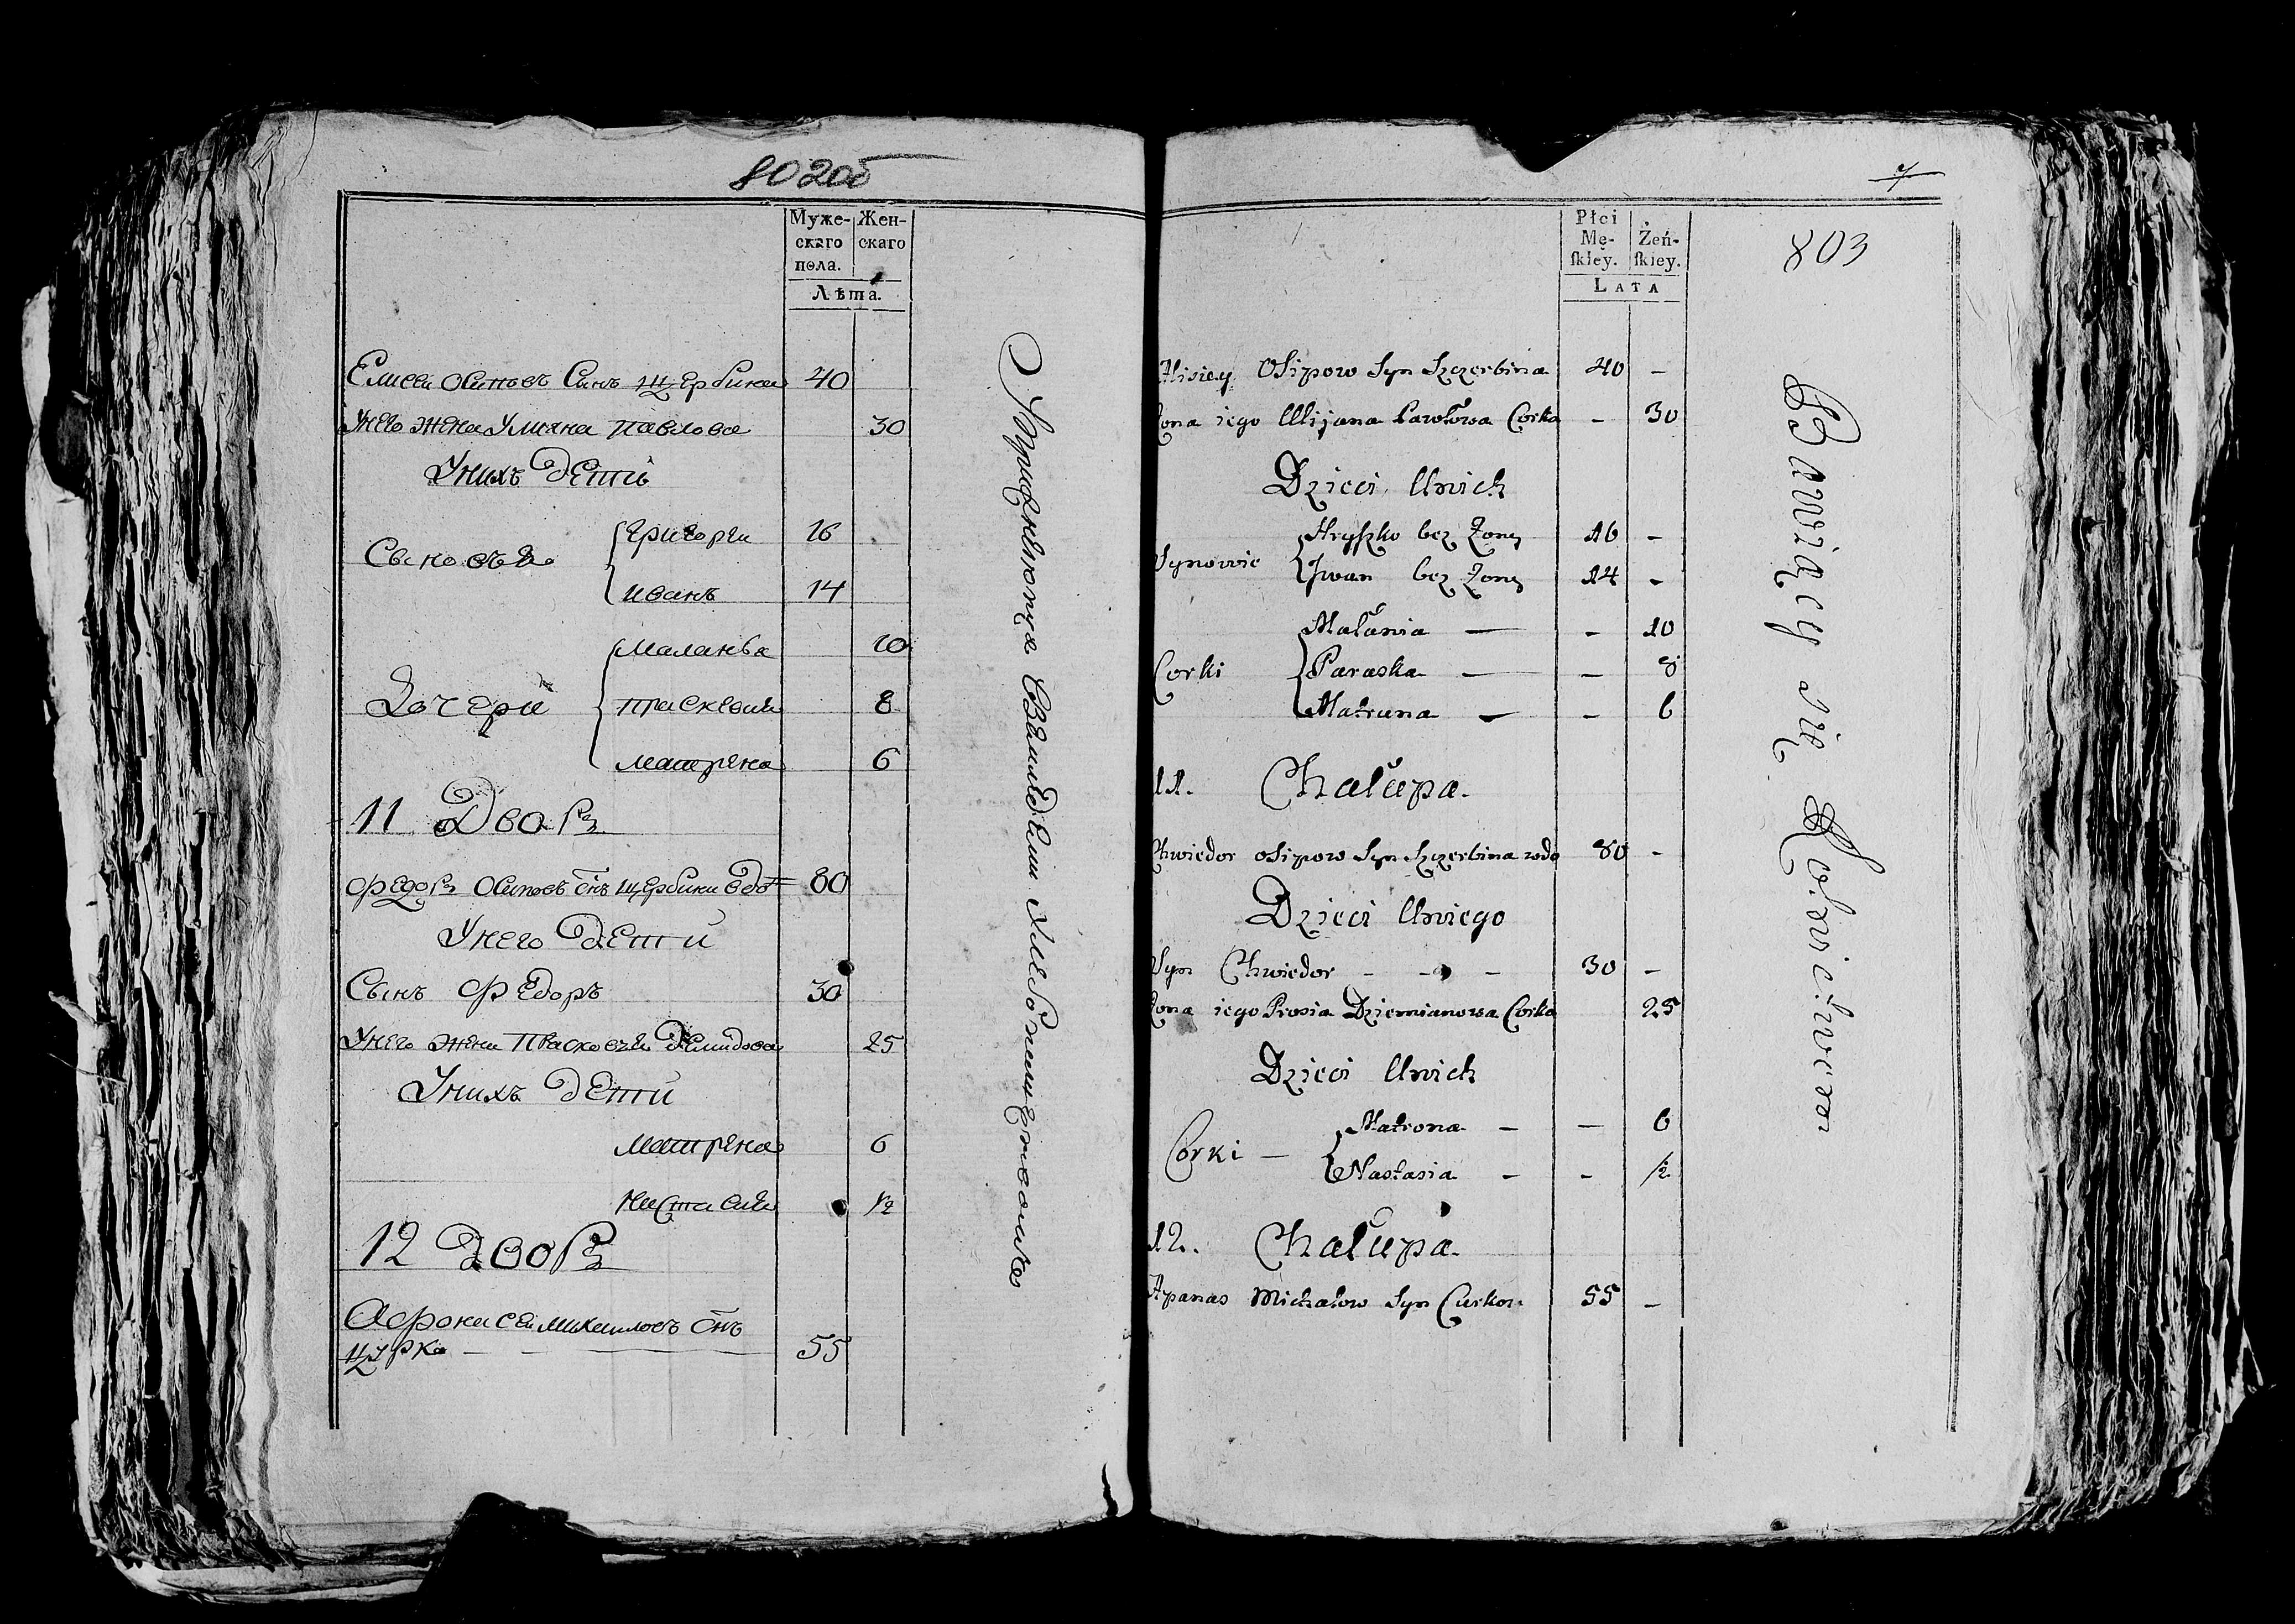 802об
Муже- Жен-
скаго скаго
пола.
Лѣта.
Елисей Осиповъ Сынъ Щербина 40
Унего жена Уляна Павлова 30
Унихъ Дети
Сыновья Григорей 16
Иванъ 14
Маланья 10
Дочери Прасковия 8
Матрена 6
11 Дворъ
Федоръ Осиповъ Снъ Щербина вдо= 80
Унего Дети
Сынъ Федоръ 30
Унего жена Прасковея Демидова 25
Унихъ Дети
Матрена 6
Настасия 1/2
12 Дворъ
Афонасей Михаиловъ Снъ
Цурка 55
Упражняющия Своимъ
803
Płci
Mę- Żeń-
ſkiey. ſkiey.
LATA
Alisiey Osipow Syn Szczerbina 40 -
Zona iego Ulijana Pawłowa Corka - 30
Dzieci Unich
Synowie Hryszko bez Zony 16 -
Jwan bez Zony 14 -
Małania - - 10
Corki Paraska - - 8
Matruna - - 6
11. Chałupa.
Chwiedor Osipow Syn Szczerbina wdo 80 -
Dzieci Uniego
Syn Chwiedor - - - 30 -
Zona iego Prosia Dziemianowa Corka 25
Dzieci Unich
Matrona - - 6
Corki -
Nastasia - - 1/2
12. Chałupa.
Apanas Michałow Syn Curkow 55 -
Bawiący się Rolnictwem